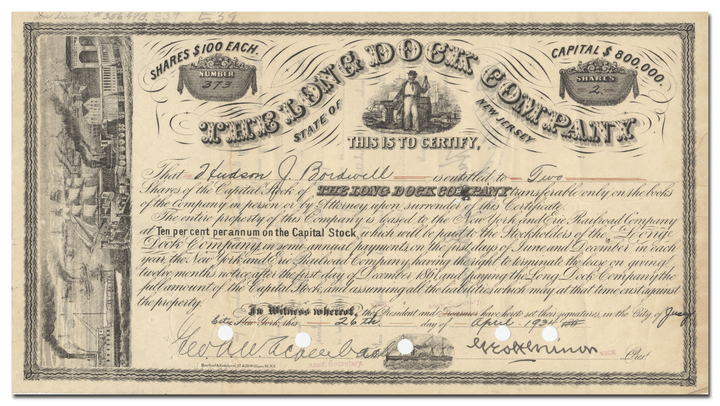 SHARES $100 EACH.
CAPITAL $800,000.
NUMBER
373
SHARES
2
THE LONG DOCK COMPANY
STATE OF
NEW JERSEY
THIS IS TO CERTIFY,
That Hudson J. Bordwell is entitled to Two
Shares of the Capital Stock of THE LONG DOCK COMPANY transferable only on the books
of the Company in person or by Attorney upon surrender of this Certificate.
The entire property of this Company is leased to the New York and Erie Railroad Company
at Ten per cent per annum on the Capital Stock, which will be paid to the Stockholders of the Long
Dock Company, in semi annual payments, on the first days of June and December in each
year, the New York and Erie Railroad Company, having the right to terminate the lease on giving
twelve months notice after the first day of December 1861, and paying the Long Dock Company, the
full amount of the Capital Stock, and assuming all the liabilities which may at that time exist against
the property.
In Witness whereof, the President and Treasurer have hereto set their signatures, in the City of Jersey
City, New York, this 26th day of April 1934
Pres!